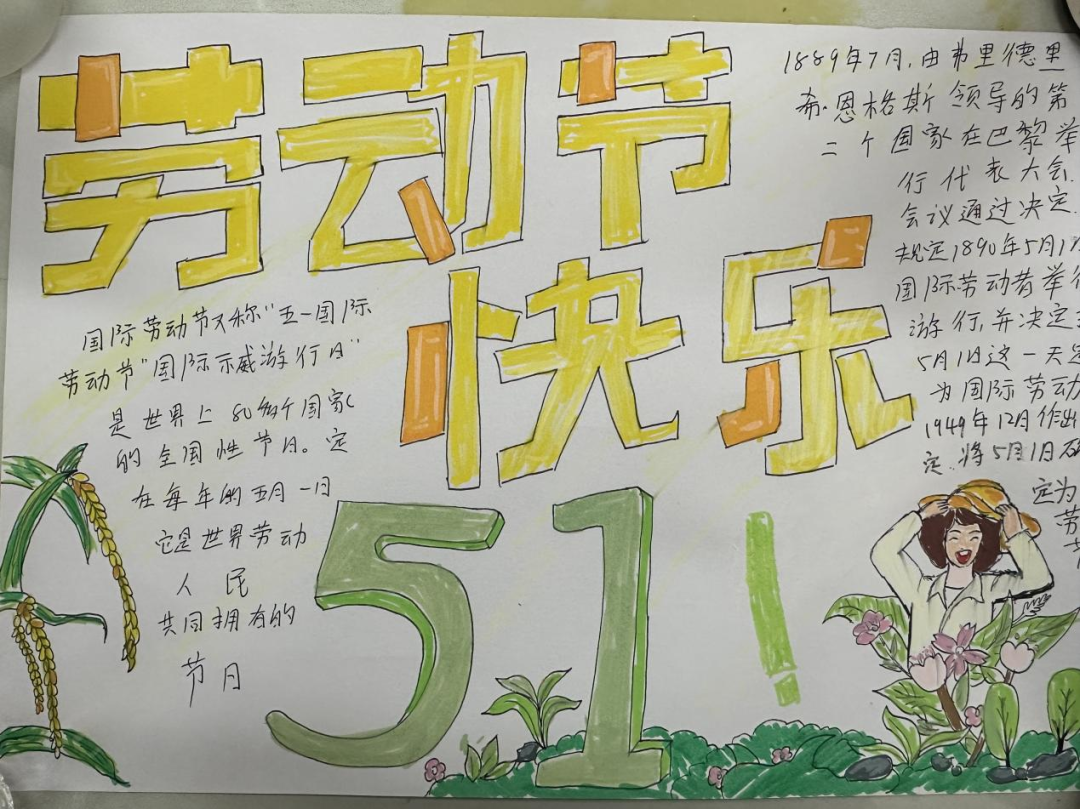 劳动节
快乐
国际劳动节又称"五一国际
劳动节"国际示威游行日"
是世界上80多个国家
的全国性节日。定
在每年的五月一日
它是世界劳动
人民
共同拥有的
节日
51!
1889年7月,由弗里德里
希·恩格斯领导的第
二个国家在巴黎举
行代表大会.
会议通过决定.
规定1890年5月1
国际劳动者举行
游行,并决定
5月1日这一天定
为国际劳动
1949年12月作出
定.将5月1日
定为
劳